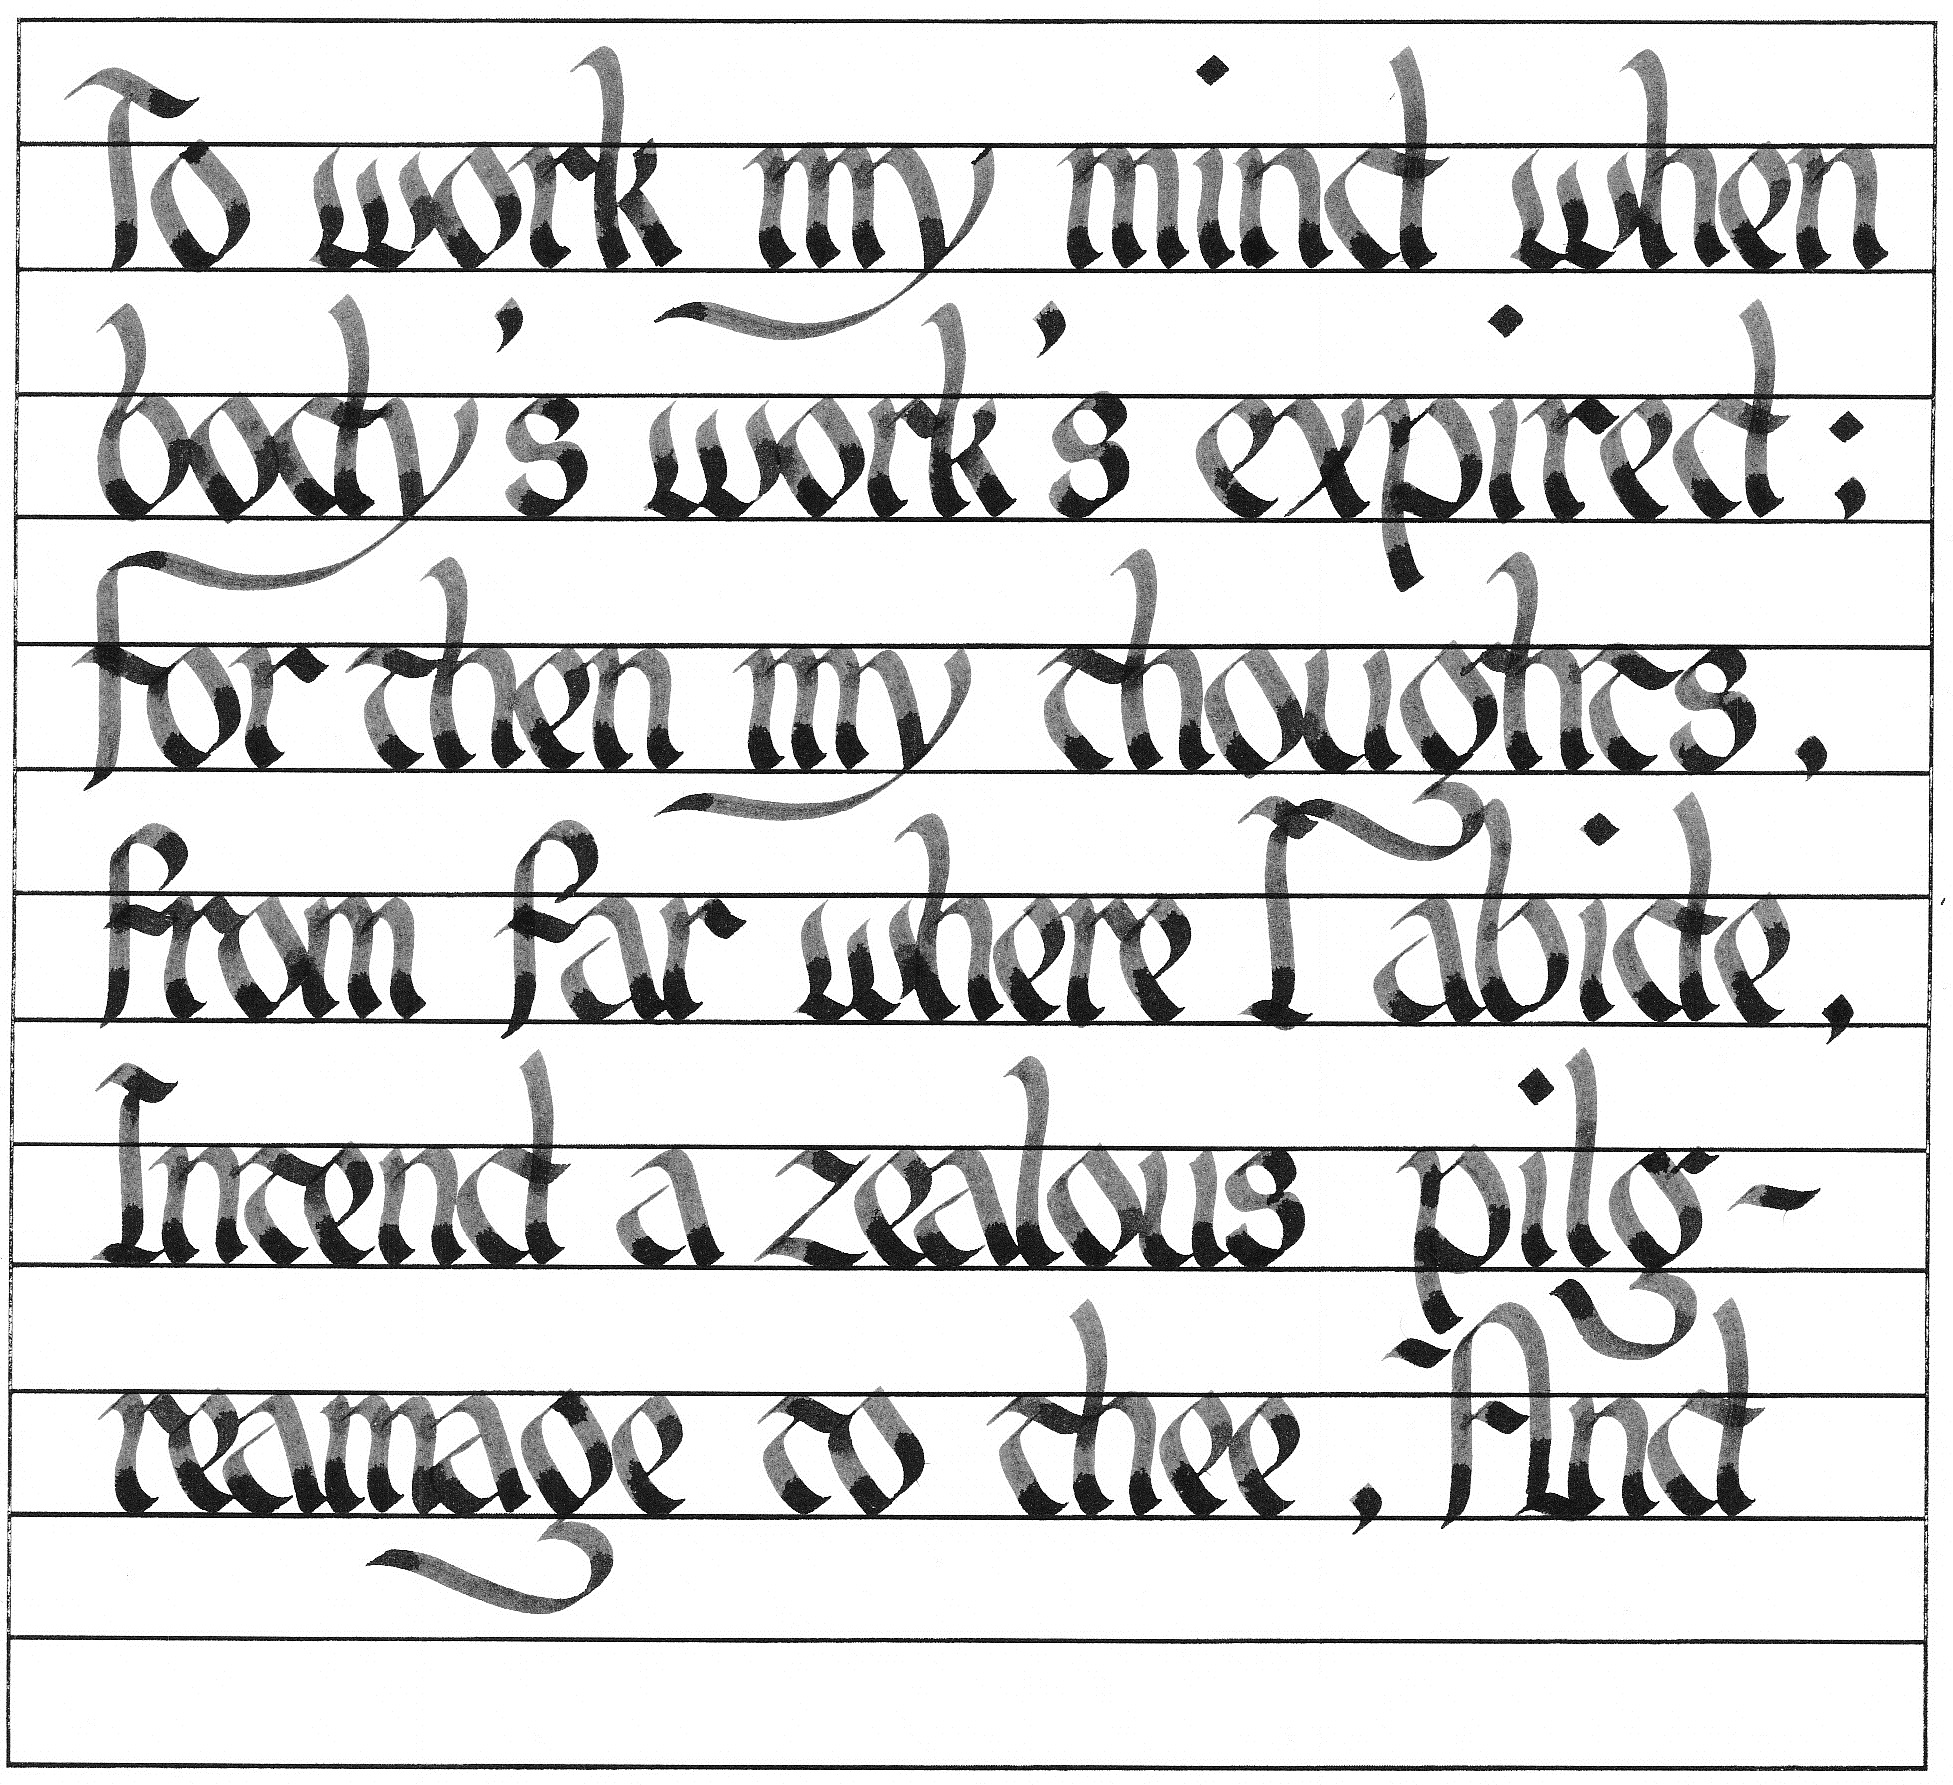 To work my mind when
body's work's expired;
for then my thoughts,
from far where I abide,
Intend a zealous pilg-
reamage to thee, And